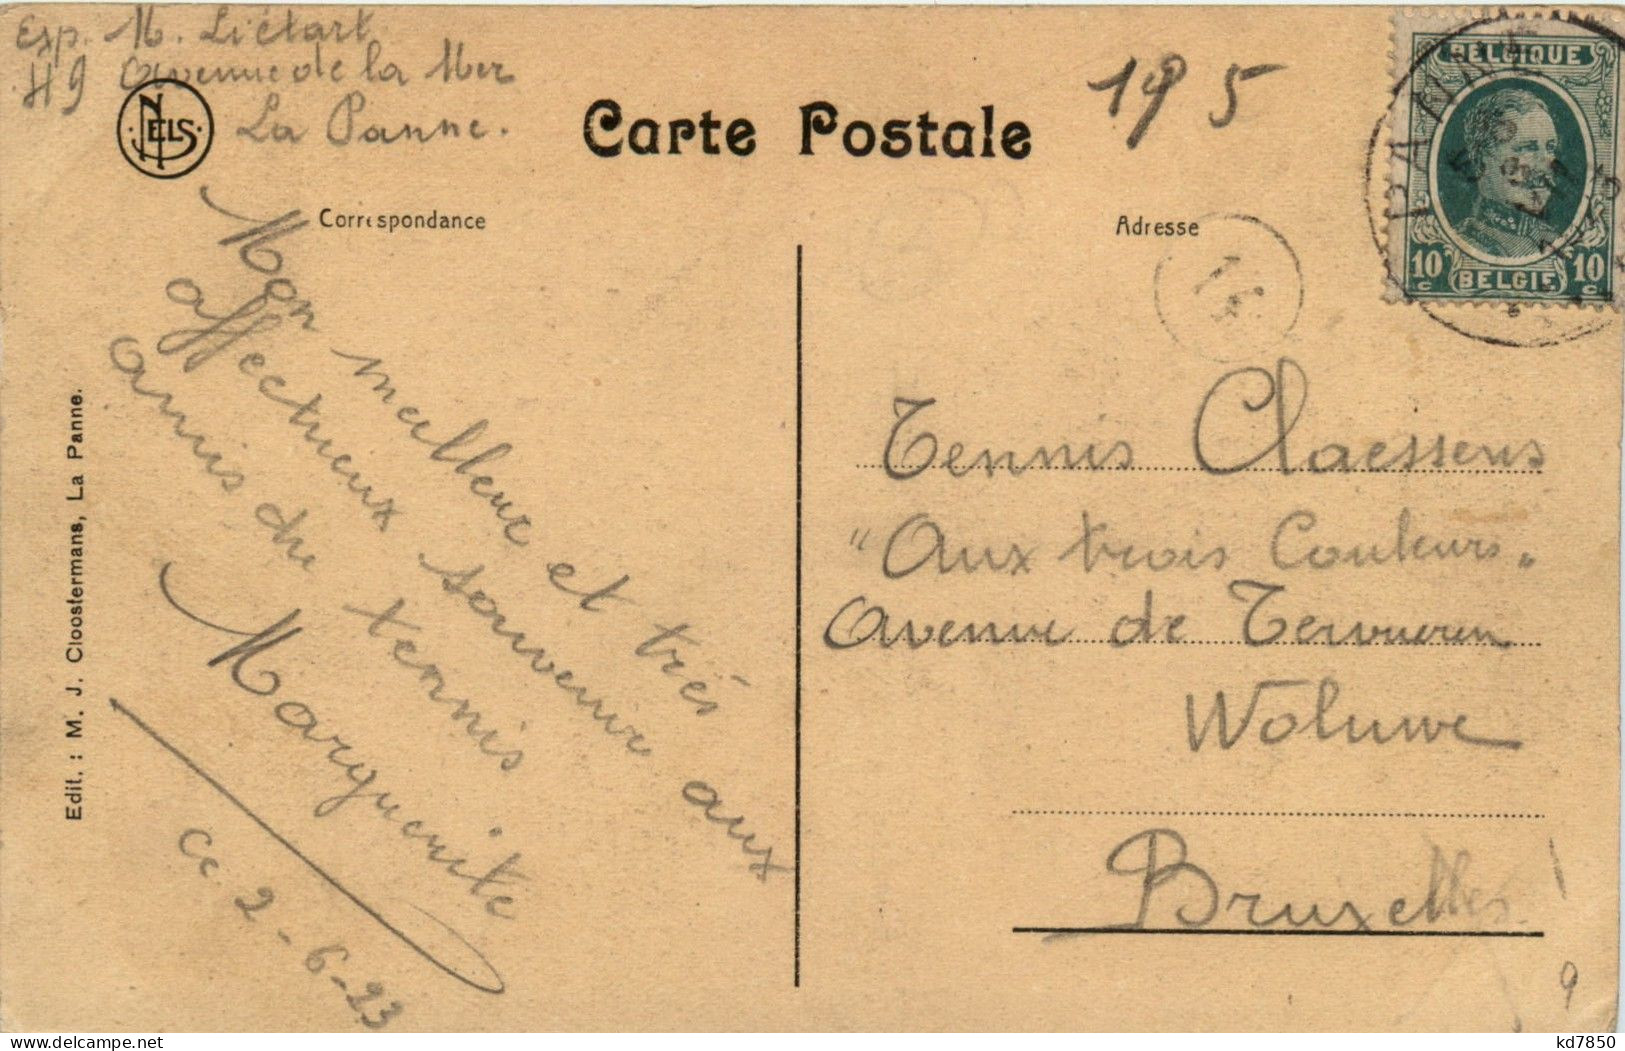 Exp. M. Liétart
49 Avenue de la Mer
La Panne.
NELS
Carte Postale
195
BELGIQUE
PANNE
10 c
10 c
BELGIE
Correspondance
Adresse
14
Mon meilleur et très
affectueux souvenir aux
amis du tennis
Marguerite
ce 2-6-23
Tennis Claessens
"Aux trois Couleurs"
Avenue de Tervueren
Woluwe
Bruxelles
9
Edit. : M. J. Cloostermans, La Panne.
kd7850